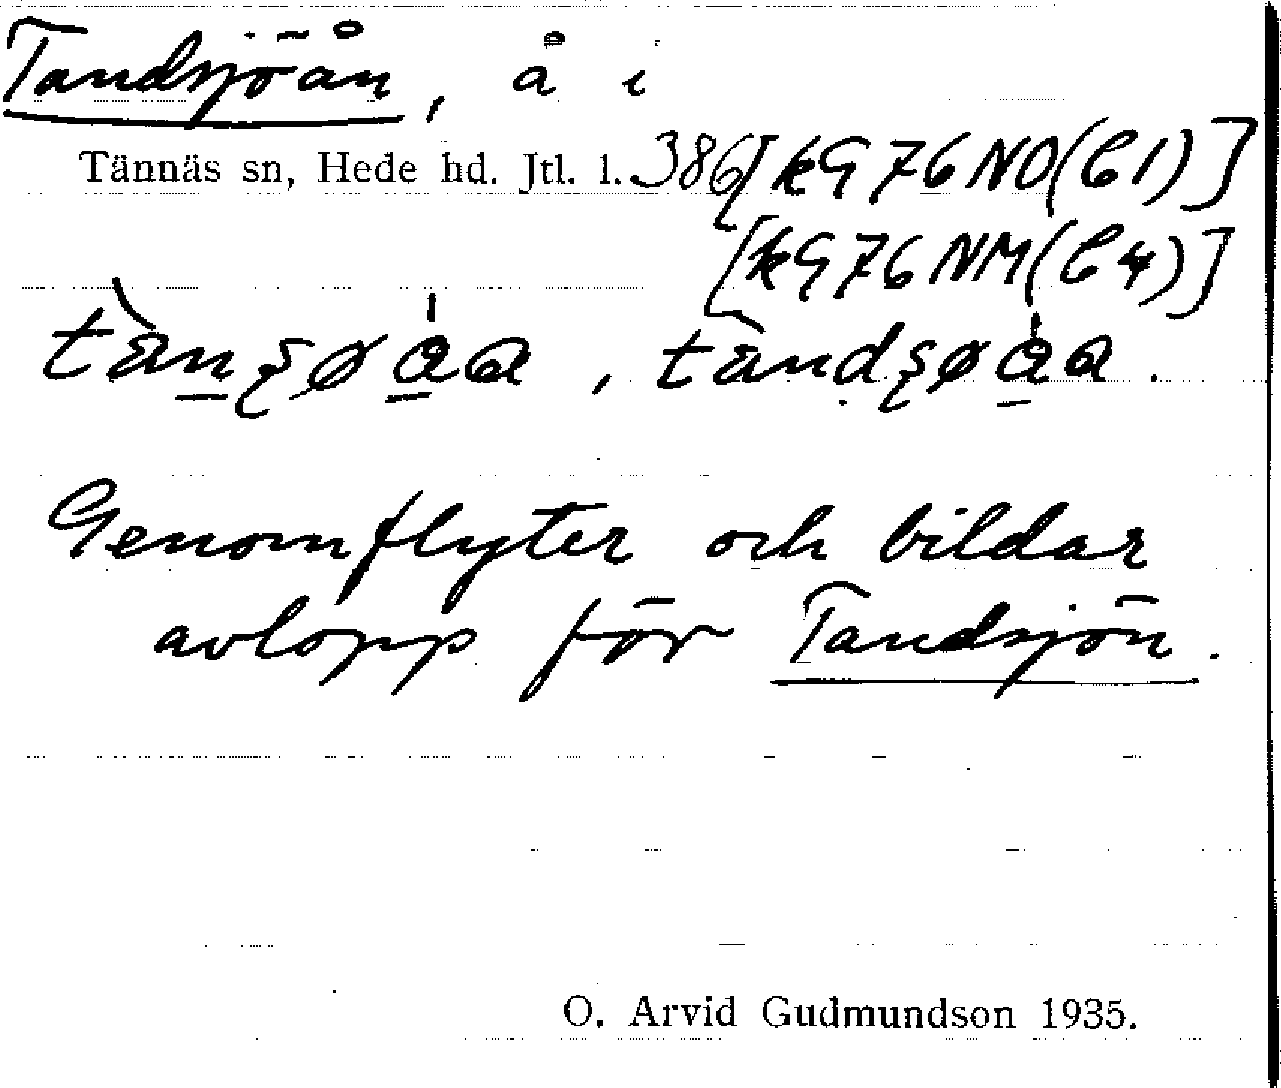 Tandsjöån, å i
Tännäs sn, Hede hd. Jtl. l. 386 [kG76NO(C1)]
[kG76NM(C4)]
Genomflyter och bildar
avlopp för Tandsjön.
O. Arvid Gudmundson 1935.